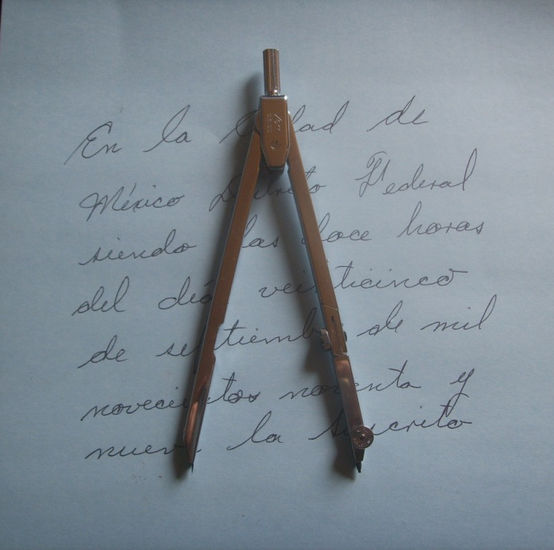 En la Ciudad de
México Distrito Federal
siendo las doce horas
del día veinticinco
de septiembre de mil
novecientos noventa y
nueve la suscrito